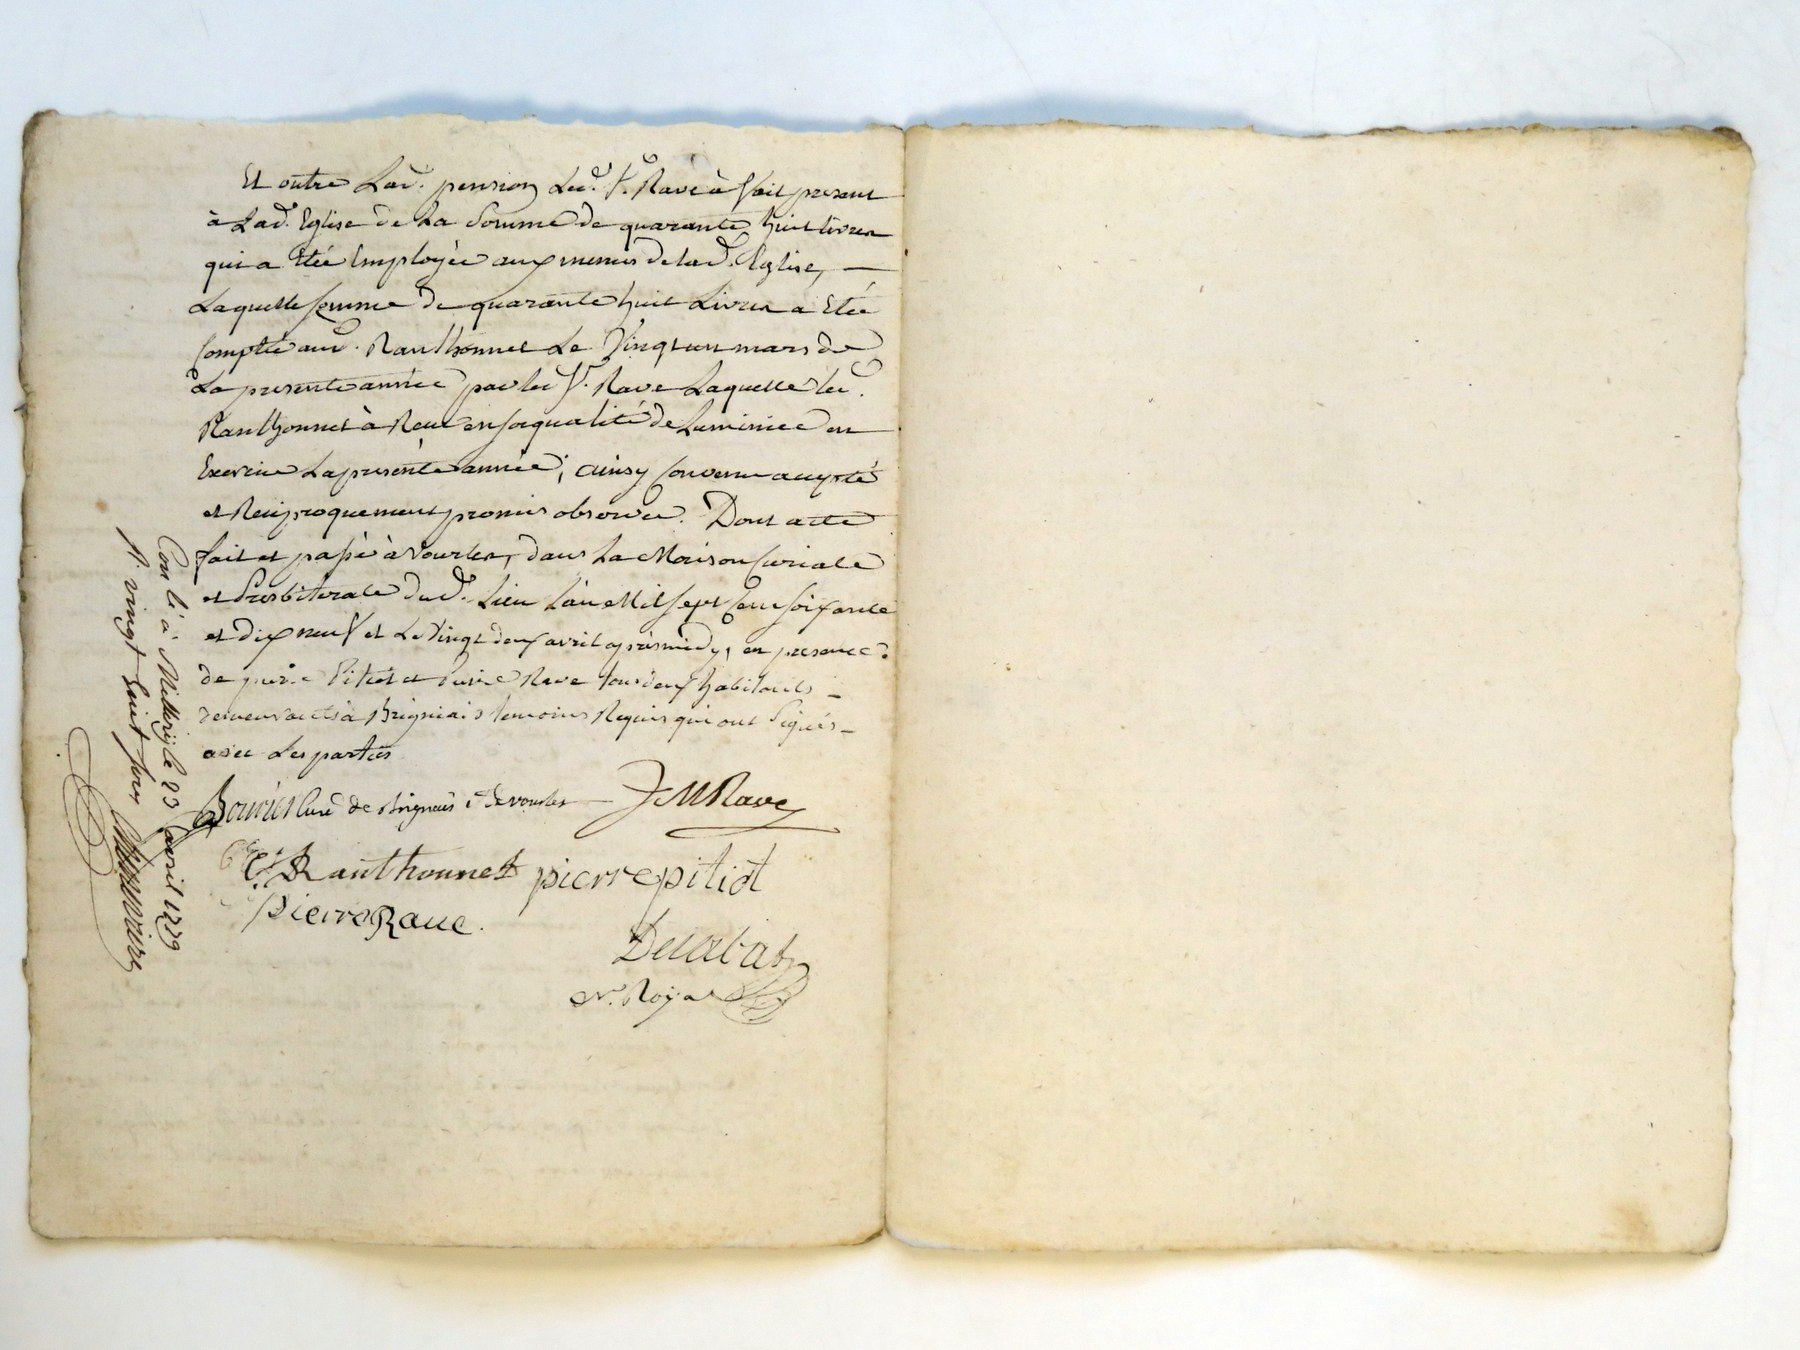 Et outre Lad. pension Led. Sr. Rave à fait present
à Lad. Eglise de La Somme de quarante huit livres
qui a Etée Employée aux menus de lad. Eglise,
Laquelle somme de quarante huit Livres a Etée
Comptée aud. Ranthonnet Le Vingt un mars de
La presente année par led Sr. Rave Laquelle led.
Ranthonnet à Reçu en sa qualité de Luminier en
Exercice La presente année; ainsy convenu accepté
et Reciproquement promis observer. Dont acte
fait et passé à Vourles, dans La Maison Curiale
et Presbiterale dud. Lieu L'an Mil sept Cent soixante
et dix neuf et Le Vingt deux avril après midy, en presence
de pierre Pitiot et Pierre Rave tous deux habitants
demeurants à Brignais temoins Requis qui ont Signés
avec Les parties
Bouvier Curé de Brignais et de vourles J M Rave
Ranthonnet pierre pitiot
Pierre Rave.
Delabat
Nre. Royal
Con. lé a. Millery le 23 avril 1779
R. vingt huit sous